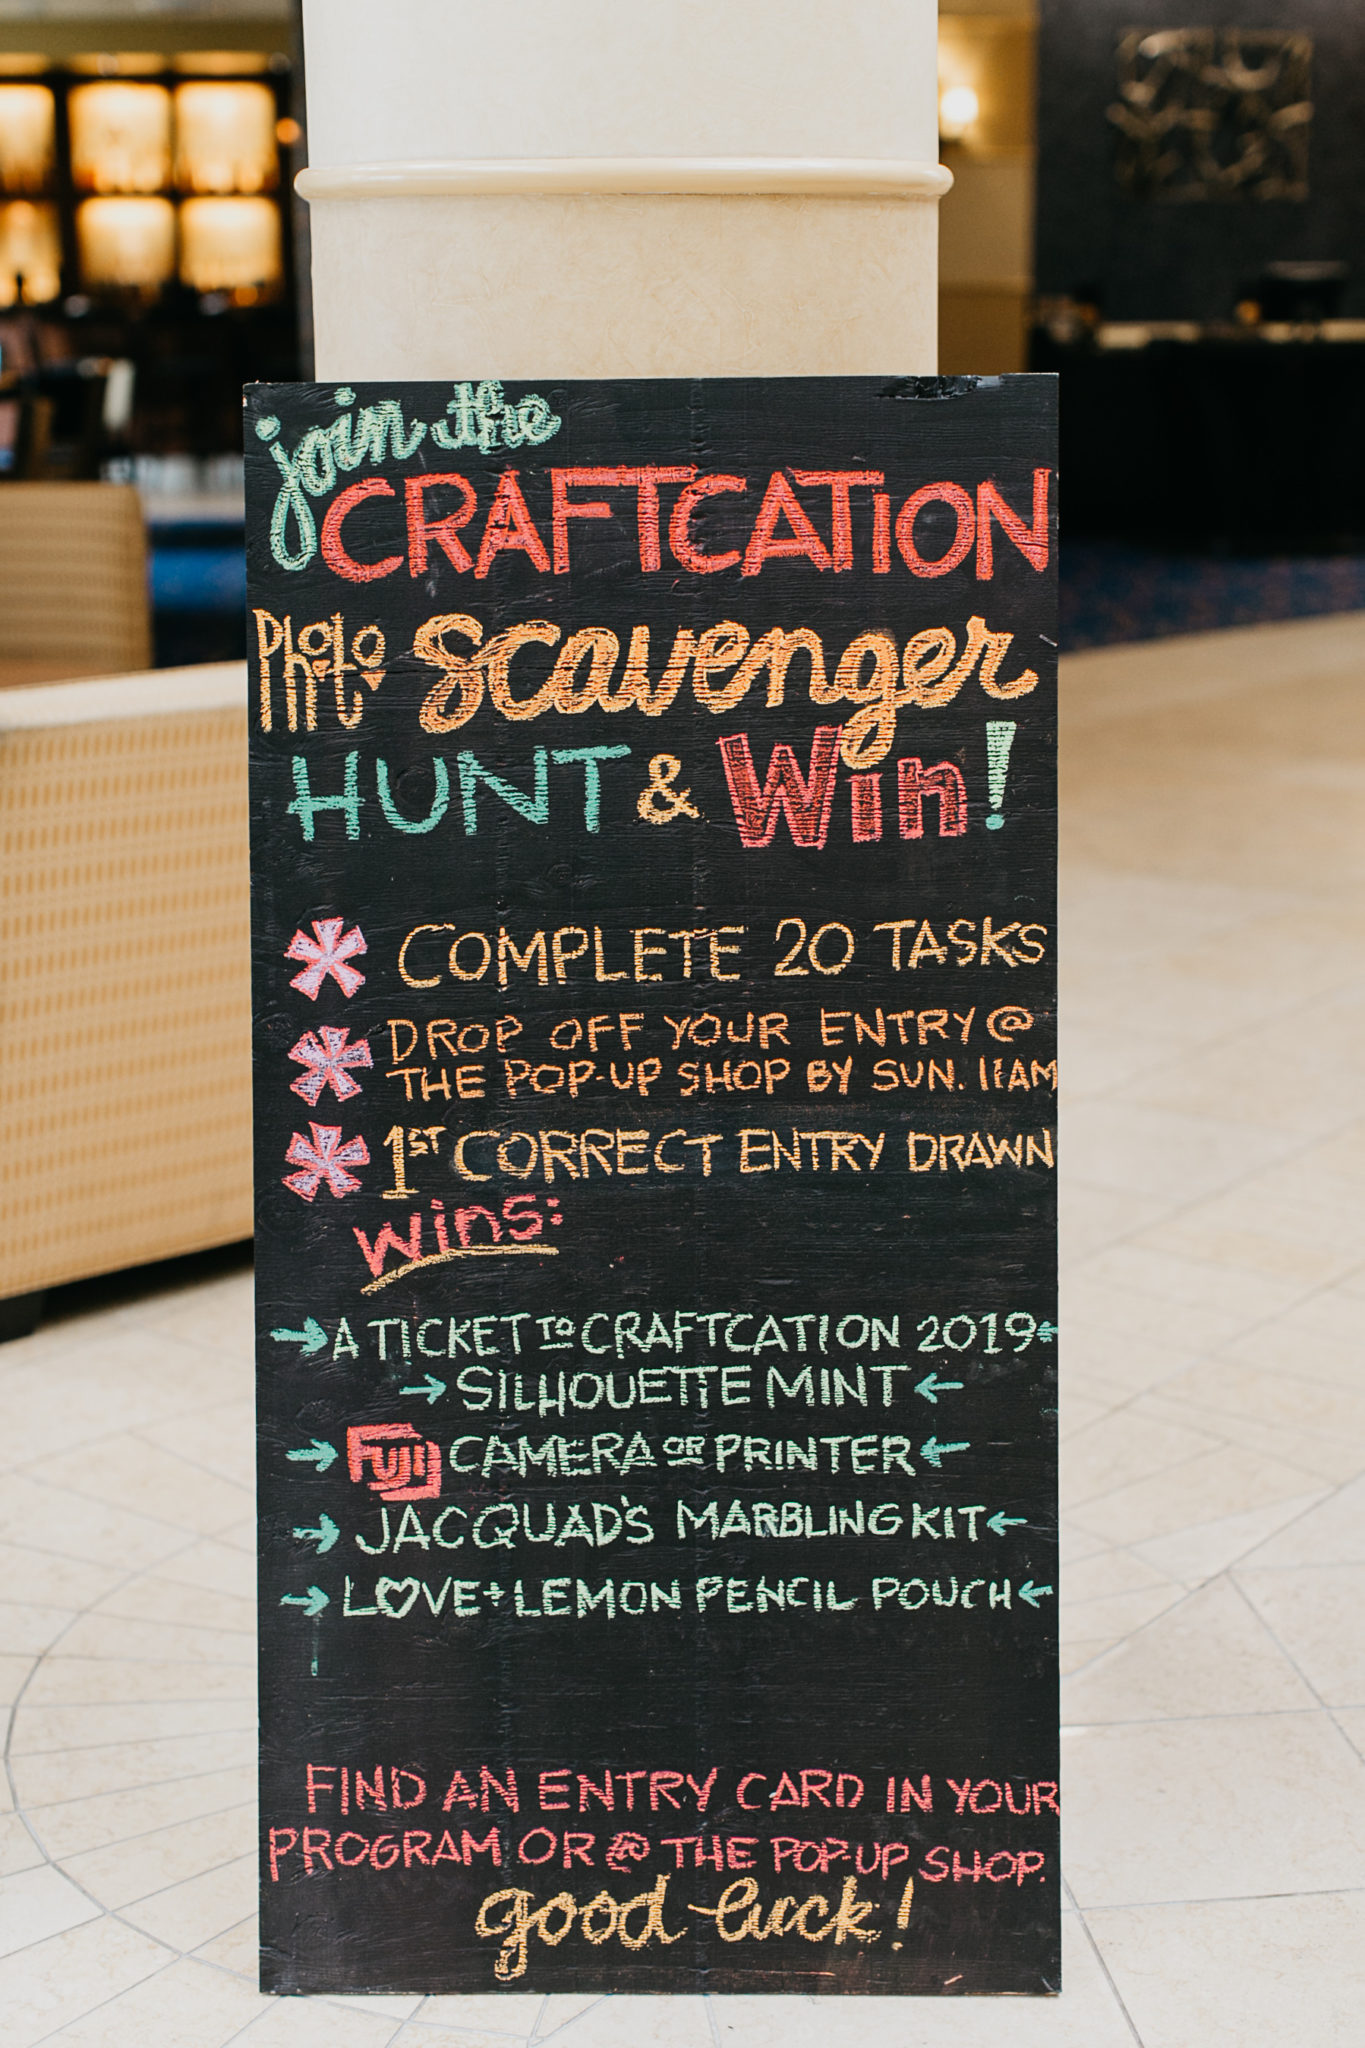 join the
CRAFTCATION
Photo Scavenger
HUNT & Win!
* COMPLETE 20 TASKS
* DROP OFF YOUR ENTRY @
THE POP-UP SHOP BY SUN. 11AM
* 1ST CORRECT ENTRY DRAWN
wins:
→ A TICKET TO CRAFTCATION 2019 ←
→ SILHOUETTE MINT ←
→ FUJI CAMERA OR PRINTER ←
→ JACQUAD'S MARBLING KIT ←
→ LOVE + LEMON PENCIL POUCH ←
FIND AN ENTRY CARD IN YOUR
PROGRAM OR @ THE POP-UP SHOP.
good luck!